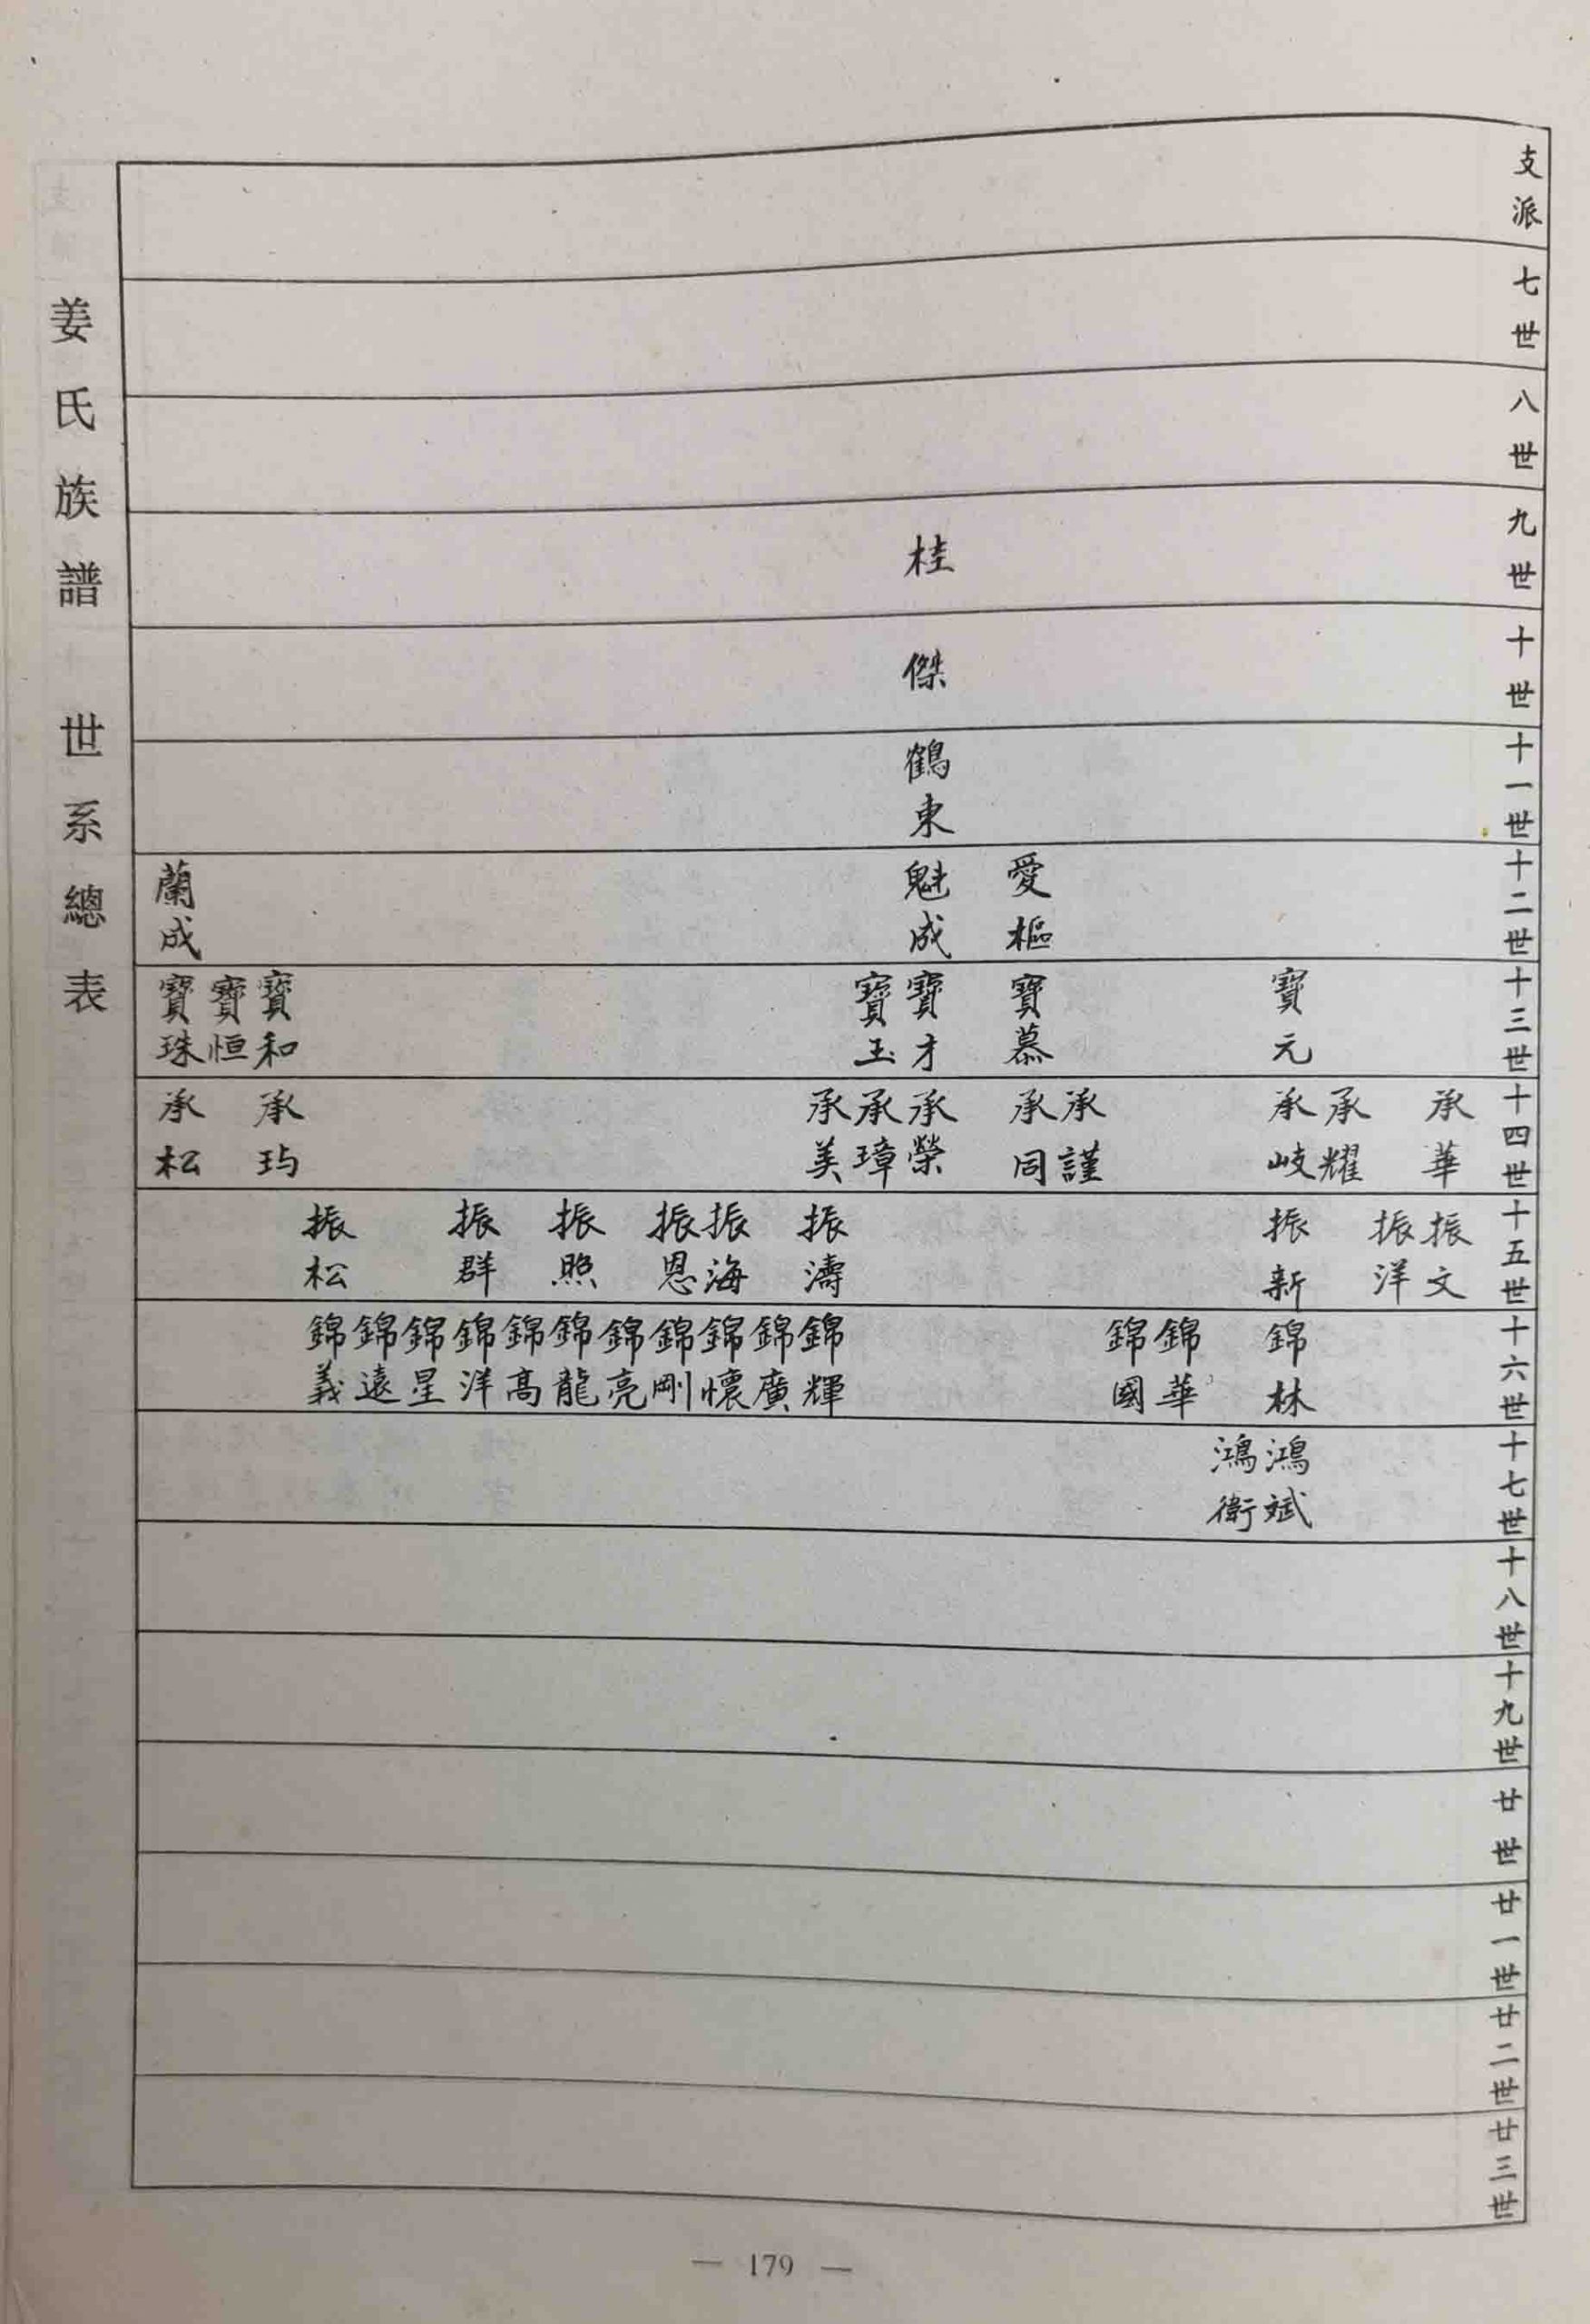 支派
七世
八世
九世 桂
十世 傑
十一世 鶴東
十二世 愛樞 魁成 蘭成
十三世 寶元 寶慕 寶才 寶玉 寶和 寶恒 寶珠
十四世 承華 承耀 承岐 承謹 承同 承榮 承璋 承美 承玙 承松
十五世 振文 振洋 振新 振濤 振海 振恩 振照 振群 振松
十六世 錦林 錦華 錦國 錦輝 錦廣 錦懷 錦剛 錦亮 錦龍 錦高 錦洋 錦星 錦遠 錦義
十七世 鴻斌 鴻衛
十八世
十九世
廿世
廿一世
廿二世
廿三世
姜氏族譜 世系總表
— 179 —